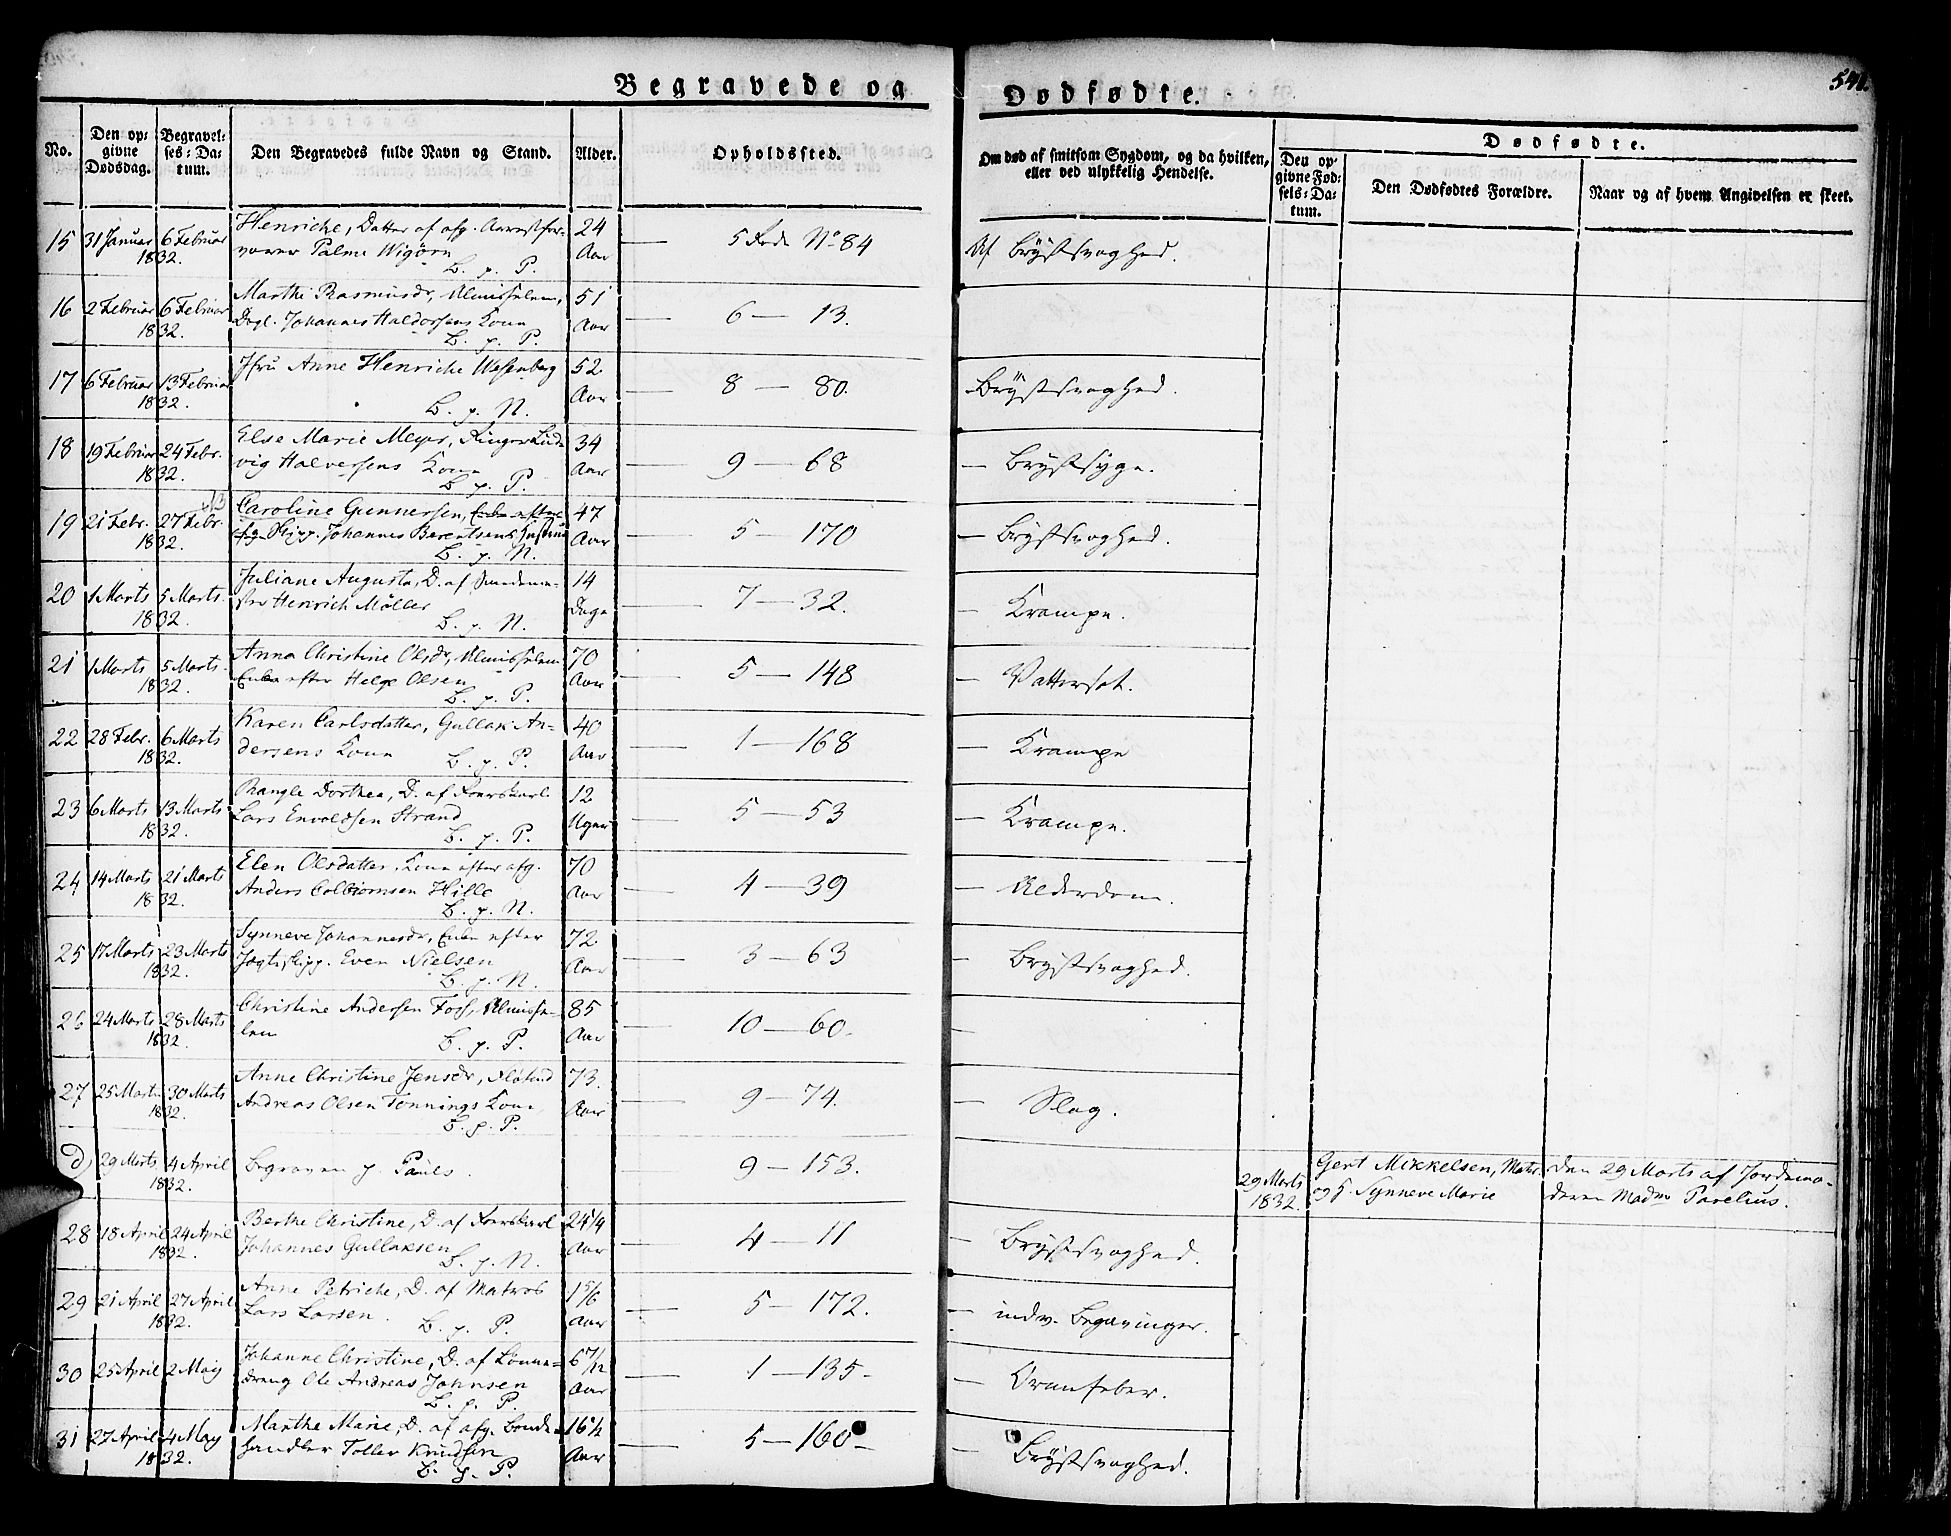 Begravede og Dødfødte.
541.
No.
Den op-
givne
Dødsdag.
Begravel-
ses-Da-
tum.
Den Begravedes fulde Navn og Stand.
Alder.
Opholdssted.
Om død af smitsom Sygdom, og da hvilken,
eller ved ulykkelig Hendelse.
Dødfødte.
Den op-
givne Fød-
sels-Da-
tum.
Den Dødfødtes Forældre.
Naar og af hvem Angivelsen er skeet.
15 31 Januar 6 Februar Henriche, Datter af afg. Arrestfor- 24
1832. varer Palme Wigørn Aar — 5 Rode No 84 Af Brÿstsvaghed.
B. p. P.
16 2 Februar 6 Februar Marthe Rasmusdr, Almisselem, 51
1832. Dagl. Johannes Haldorsens Kone Aar — 6 — 13.
B. p. P.
17 6 Februar 13 Februar Jfru Anne Henriche Wesenberg 52
1832. Aar — 8 — 80. Brÿstsvaghed.
B. p. N.
18 19 Februar 24 Febr. Else Marie Meyer, Ringer Lud- 34
1832. vig Halversens Kone Aar — 9 — 68 — Brÿstsyge.
B. p. P.
19 21 Febr. 27 Febr. Caroline Gunnersen, Enke efter 47
1832. afg. Skipp. Johannes Berentsens Hustrue Aar — 5 — 170 — Brÿstsvaghed.
B. p. N.
20 1 Marts 5 Marts Juliane Augusta, D. af 14
1832. Henrich Møller Dage — 7 — 32. — Krampe.
B. p. N.
21 1 Marts 5 Marts Anna Christine Olsdr, Almisselem 70
1832. Enke efter Helge Olsen Aar — 5 — 148 — Vattersot.
B. p. P.
22 28 Febr. 6 Marts Karen Carlsdatter, Gullak An- 40
1832. dersens Kone Aar — 1 — 168 — Krampe
B. p. P.
23 6 Marts 13 Marts Rangle Dorthea, D. af Koerskarl 12
1832. Lars Envoldsen Strand Uger — 5 — 53 — Krampe.
B. p. P.
24 14 Marts 21 Marts Elen Olsdatter, Kone efter afg. 70
1832. Anders Colbiørnsen Hille Aar — 4 — 39 — Alderdom.
B. p. N.
25 17 Marts 23 Marts Synneve Johannesdr, Enke efter 72
1832. Jagtskipp. Even Nielsen Aar — 3 — 63 — Brÿstsvaghed.
B. p. N.
26 24 Marts 28 Marts Christine Andersen Foss, Almisse- 85
1832. lem Aar — 10 — 60. —
B. p. P.
27 25 Marts 30 Marts Anne Christine Jensdr, 73.
1832. Andreas Olsen Tonnings Kone Aar — 9 — 74. — Slag.
B. p. P.
d, 29 Marts 4 April Begraven p. Pauls. 9 — 153.
1832.
29 Marts
1832.
Gert Mikkelsen, Matr.
og H. Synneve Marie
den 29 Marts af Jordemo-
deren Madm Parelius.
28 18 April 24 April Berthe Christine, D. af Koerskarl 24 1/4
1832. Johannes Gullaksen Aar — 4 — 11 — Brÿstsvaghed.
B. p. N.
29 21 April 27 April Anne Petriche, D. af Matros 1 5/6
1832. Lars Larsen. Aar — 5 — 172. — indv. Begavinger.
B. p. P.
30 25 April 2 Maij Johanne Christine, D. af 6 7/12
Ole Andreas Johnsen Aar — 1 — 135 — — Ormefeber.
B. p. P.
31 27 April 4 Maij Marthe Marie, D. af afg. Bonde- 16 1/2
1832. handler Toller Knudsen Aar — 5 — 160 — — Brÿstsvaghed.
B. p. P.